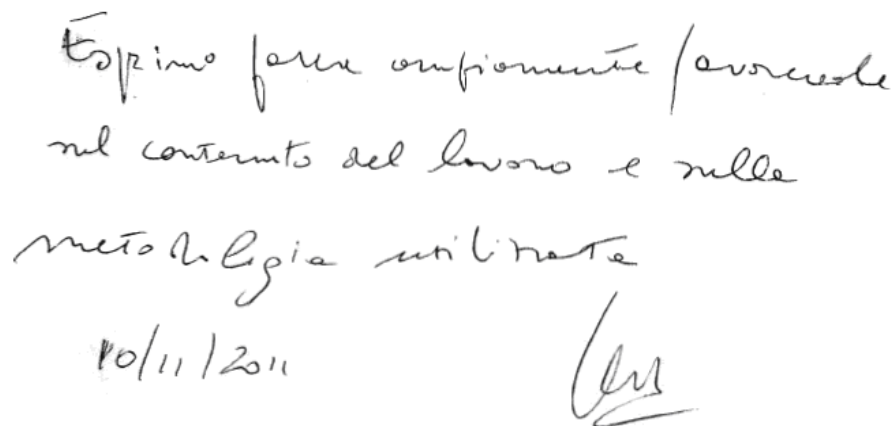 Esprimo parere ampiamente favorevole
sul contenuto del lavoro e sulla
metodologia utilizzata
10/11/2011